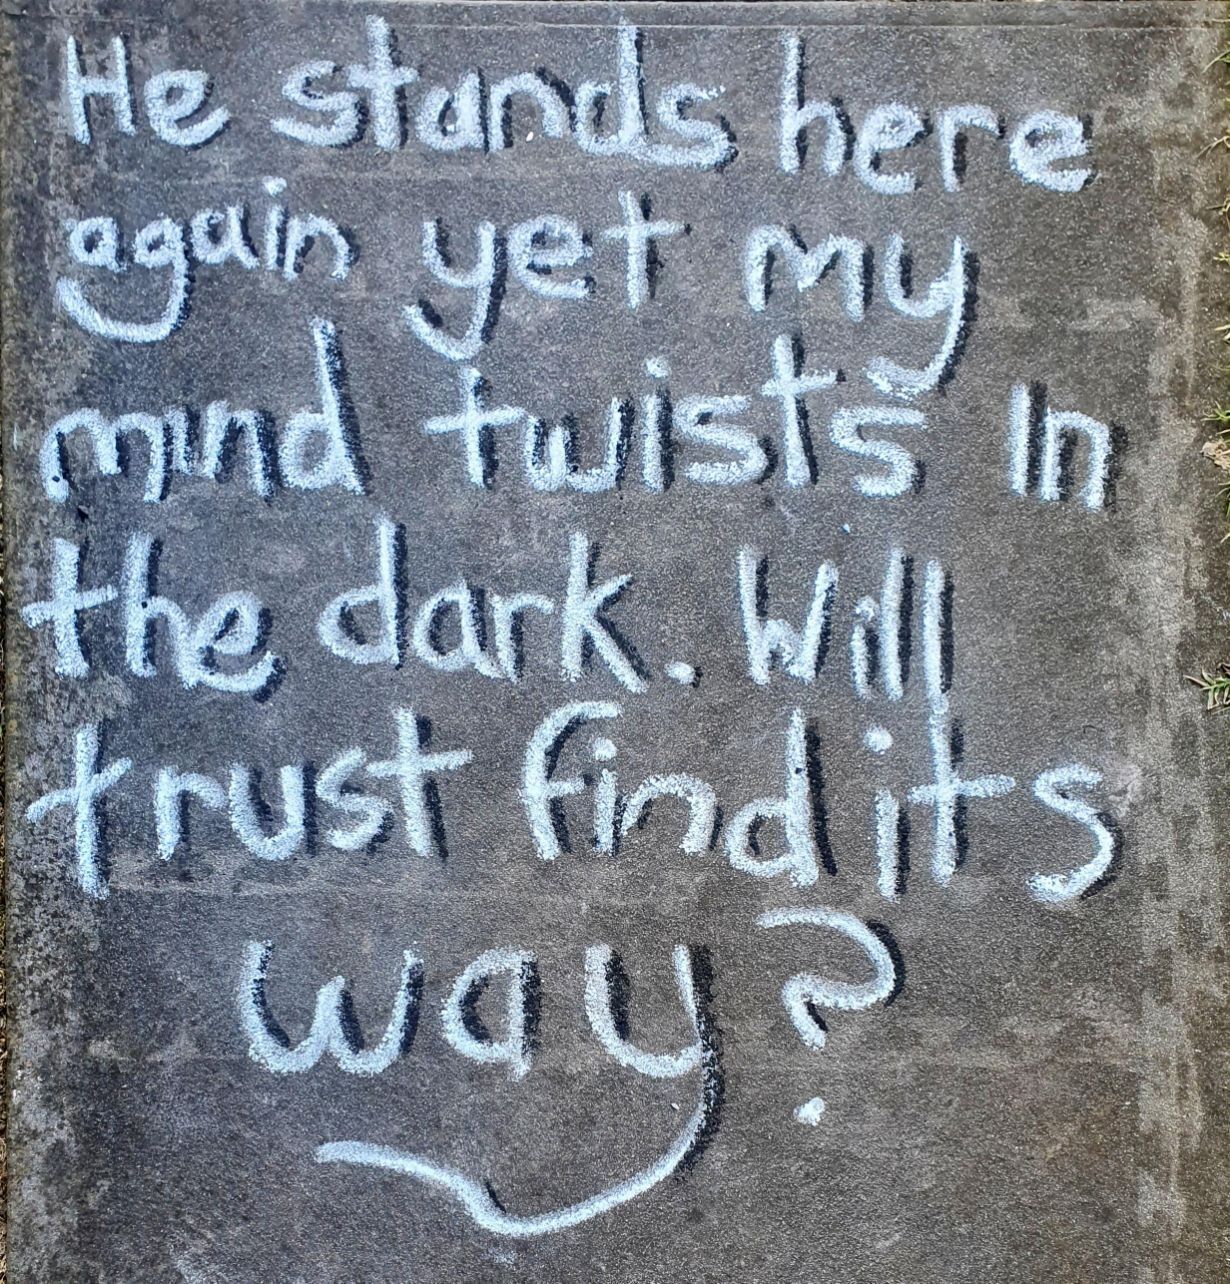 He stands here
again yet my
mind twists In
the dark. Will
trust find its
way?